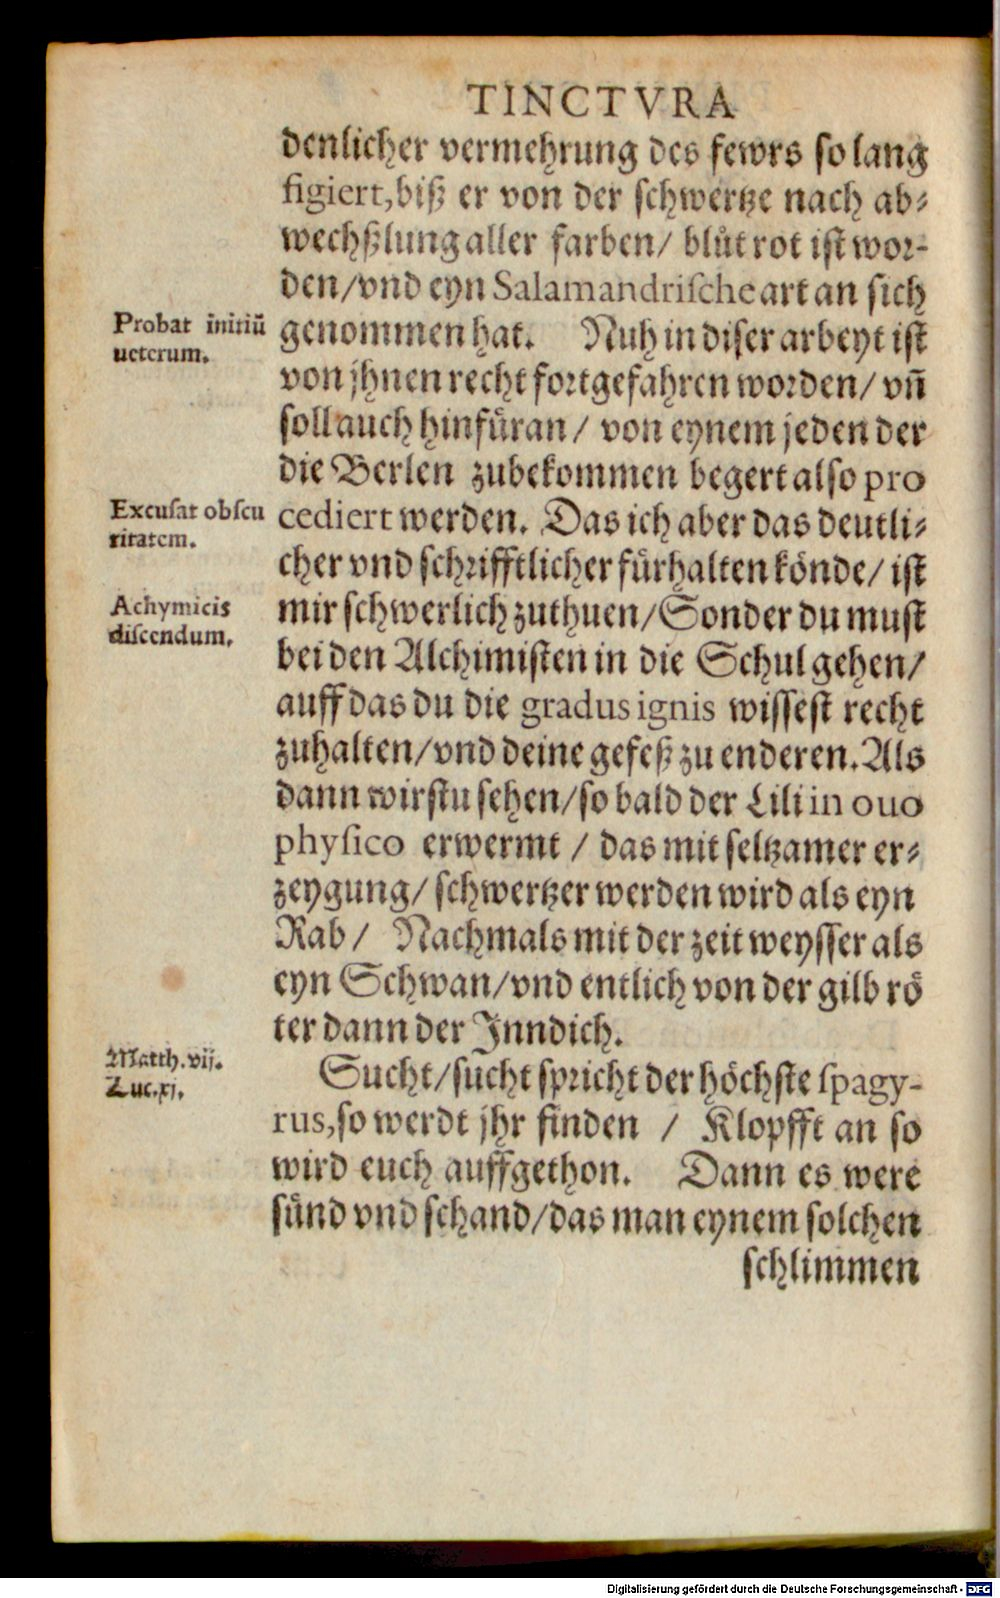 TINCTVRA
denlicher vermehrung des fewrs so lang
figiert, biß er von der schwertze nach ab⸗
wechßlung aller farben/ blůt rot ist wor-
den/ vnd eyn Salamandrische art an sich
Probat initiū
ueterum.
genommen hat. Nuh in diser arbeyt ist
von jhnen recht fortgefahren worden/ vn̄
soll auch hinfüran/ von eynem jeden der
die Berlen zubekommen begert also pro
Excusat obscu
ritatem.
cediert werden. Das ich aber das deutli⸗
cher vnd schrifftlicher fürhalten könde/ ist
Achymicis
discendum.
mir schwerlich zuthuen/ Sonder du must
bei den Alchimisten in die Schul gehen/
auff das du die gradus ignis wissest recht
zuhalten/ vnd deine gefeß zu enderen. Als
dann wirstu sehen/ so bald der Lili in ouo
physico erwermt / das mit seltzamer er⸗
zeygung/ schwertzer werden wird als eyn
Rab/ Nachmals mit der zeit weysser als
eyn Schwan/ vnd entlich von der gilb rö
ter dann der Inndich.
Matth. vij.
Luc. xj.
Sucht/ sucht spricht der höchste spagy-
rus, so werdt jhr finden / Klopfft an so
wird euch auffgethon. Dann es were
sünd vnd schand/ das man eynem solchen
schlimmen
Digitalisierung gefördert durch die Deutsche Forschungsgemeinschaft - DFG